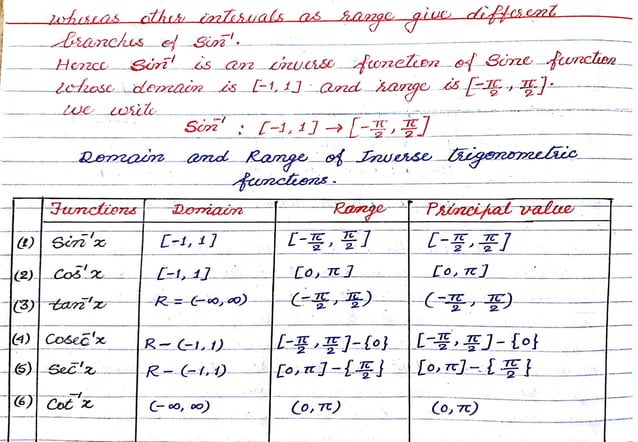 whereas other intervals as range give different
branches of Sin⁻¹.
Hence Sin⁻¹ is an inverse function of Sine function
whose domain is [-1, 1] and range is [-π/2, π/2].
we write
Sin⁻¹ : [-1, 1] → [-π/2, π/2]
Domain and Range of Inverse trigonometric
functions.
Functions Domain Range Principal value
(1) Sin⁻¹x [-1, 1] [-π/2, π/2] [-π/2, π/2]
(2) Cos⁻¹x [-1, 1] [0, π] [0, π]
(3) tan⁻¹x R = (-∞, ∞) (-π/2, π/2) (-π/2, π/2)
(4) Cosec⁻¹x R - (-1, 1) [-π/2, π/2] - {0} [-π/2, π/2] - {0}
(5) Sec⁻¹x R - (-1, 1) [0, π] - {π/2} [0, π] - {π/2}
(6) Cot⁻¹x (-∞, ∞) (0, π) (0, π)